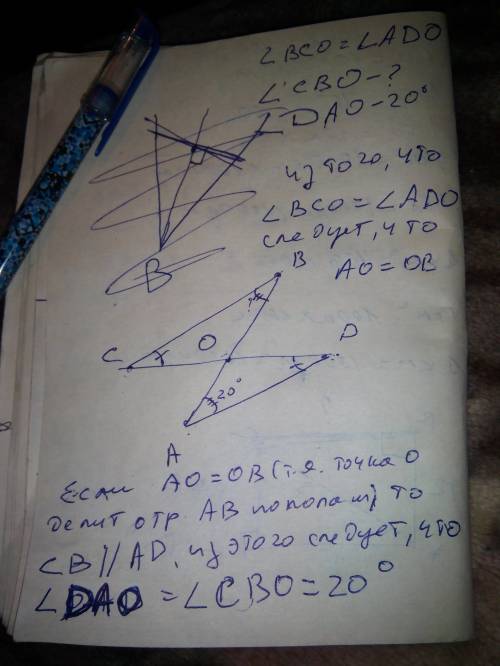 ∠BCO = ∠ADO
∠CBO - ?
∠DAO - 20°
из того, что
∠BCO = ∠ADO
следует, что
AO = OB
B
B
?
C
O
D
20°
A
Если AO = OB (т.я. точка O
делит отр. AB пополам) то
CB || AD, из этого следует, что
∠DAO = ∠CBO = 20°